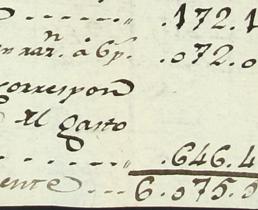 .172.1
en raz.n á 6 p. .072.0
correspon
el gasto
.646.4
ente 6.075.0